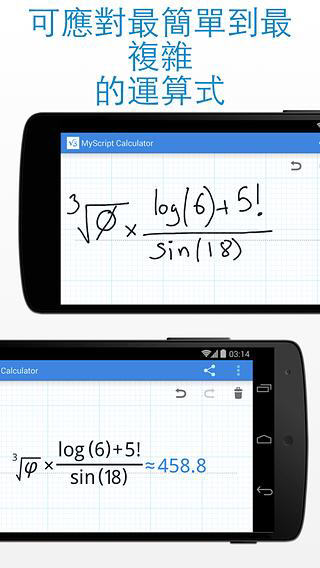 可應對最簡單到最
複雜
的運算式
√5 MyScript Calculator
∛Ø × (log(6)+5!)/(sin(18))
03:14
Calculator
∛φ × (log(6)+5!)/(sin(18)) ≈458.8